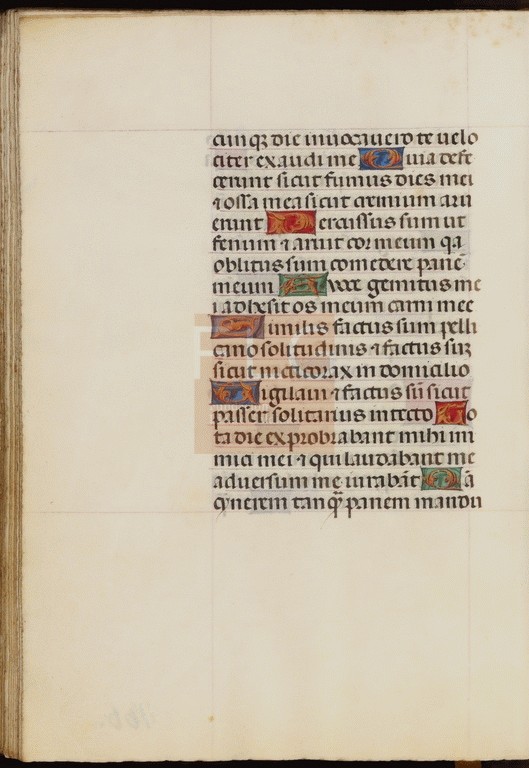 cunqꝫ die inuocauero te uelo
citer exaudi me Quia defe
cerunt sicut fumus dies mei
⁊ ossa mea sicut cremium aru
erunt Percussus sum ut
fenum ⁊ aruit cor meum qa
oblitus sum comedere panē
meum A voce gemitus me
i adhesit os meum carni mee
Similis factus sum pelli
cano solitudinis ⁊ factus sū
sicut nicticorax in domicilio
Vigilaui ⁊ factus sū sicut
passer solitarius in tecto To
ta die exprobrabant mihi ini
mici mei ⁊ qui laudabant me
aduersum me iurabāt Q ā
cynerem tanꝙ panem mandu